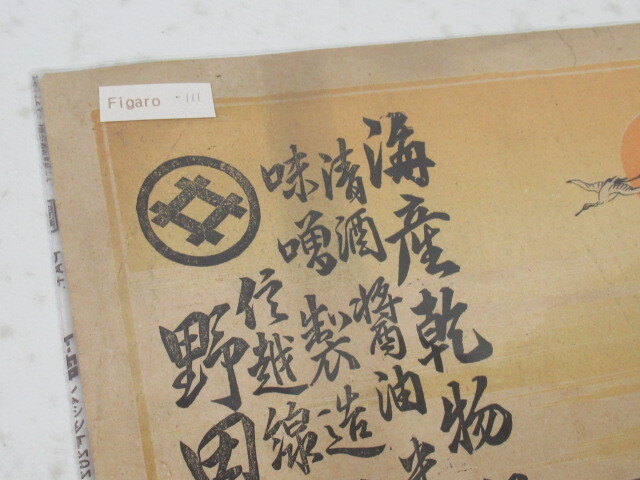 Figaro -111
海産乾物
清酒醤油
味噌製造
信越線
野田